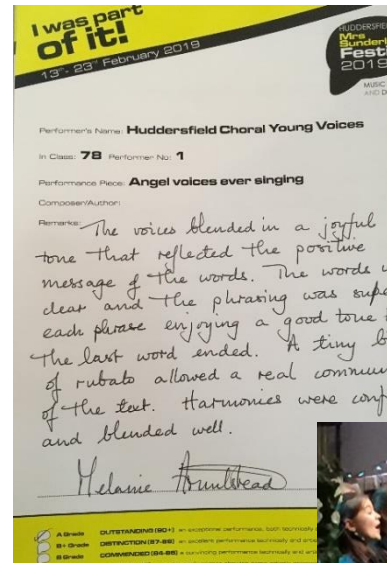 I was part
of it!
13th - 23rd February 2019
HUDDERSFIELD
Mrs
Sunderland
Festival
2019
MUSIC
AND
Performer's Name: Huddersfield Choral Young Voices
In Class: 78 Performer No: 1
Performance Piece: Angel voices ever singing
Composer/Author:
Remarks: The voices blended in a joyful
tone that reflected the positive
message of the words. The words
clear and the phrasing was
each phrase enjoying a good tone
the last word ended. A tiny
of rubato allowed a real
of the text. Harmonies were
and blended well.
Melanie
A Grade OUTSTANDING (90+) an exceptional performance, both technically
B+ Grade DISTINCTION (87-89) an excellent performance technically and
B Grade COMMENDED (84-86) a convincing performance technically and